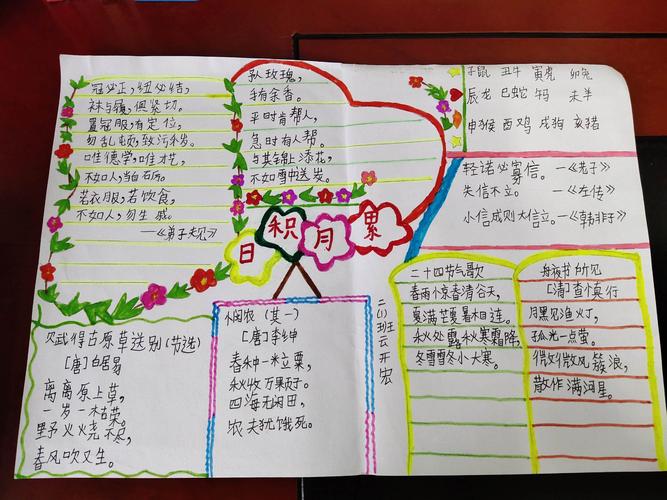 冠必正，纽必结，
袜与履，俱紧切。
置冠服，有定位，
勿乱顿，致污秽。
唯德学，唯才艺，
不如人，当自砺。
若衣服，若饮食，
不如人，勿生戚。
—《弟子规》
赠人玫瑰，
手有余香。
平时肯帮人，
急时有人帮。
与其锦上添花，
不如雪中送炭。
子鼠 丑牛 寅虎 卯兔
辰龙 巳蛇 午马 未羊
申猴 酉鸡 戌狗 亥猪
轻诺必寡信。—《老子》
失信不立。—《左传》
小信成则大信立。—《韩非子》
日积月累
赋得古原草送别（节选）
[唐]白居易
离离原上草，
一岁一枯荣。
野火烧不尽，
春风吹又生。
悯农（其一）
[唐]李绅
春种一粒粟，
秋收万颗子。
四海无闲田，
农夫犹饿死。
二（1）班 云开宏
二十四节气歌
春雨惊春清谷天，
夏满芒夏暑相连。
秋处露秋寒霜降，
冬雪雪冬小大寒。
舟夜书所见
[清]查慎行
月黑见渔灯，
孤光一点萤。
微微风簇浪，
散作满河星。